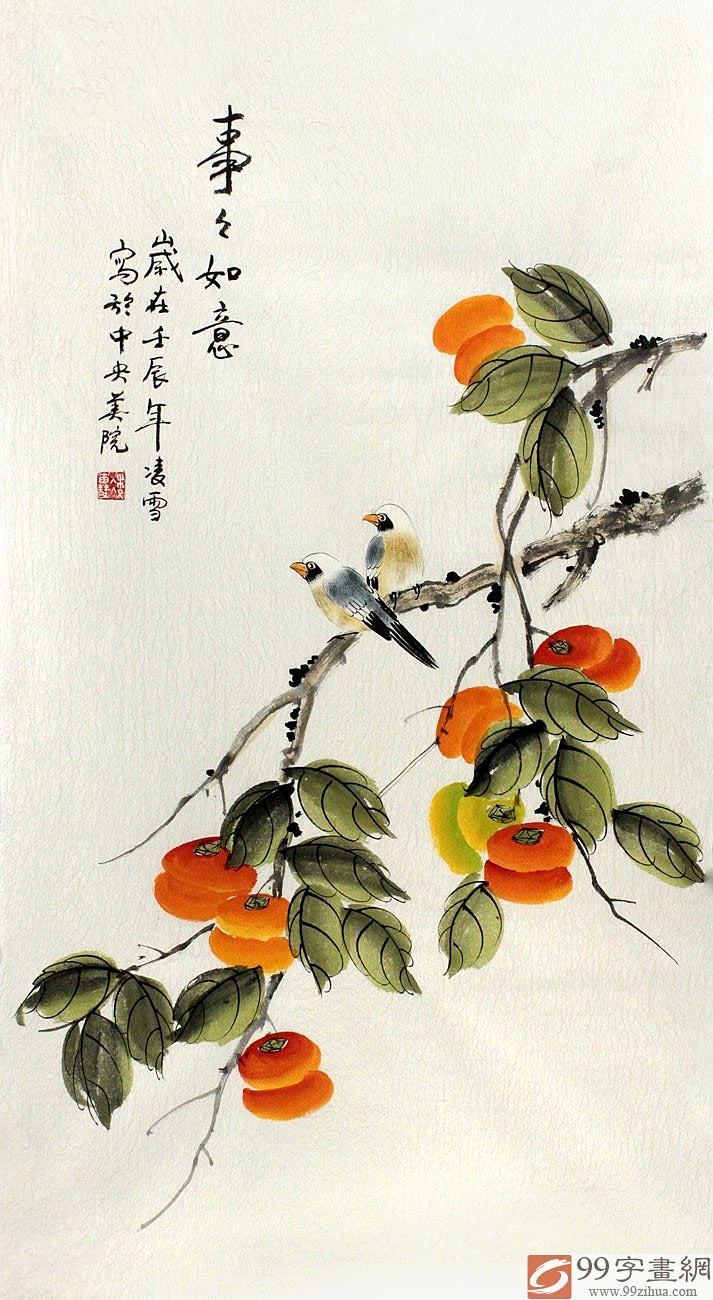 事々如意
歲在壬辰年凌雪
寫於中央美院
99字畫網
www.99zihua.com